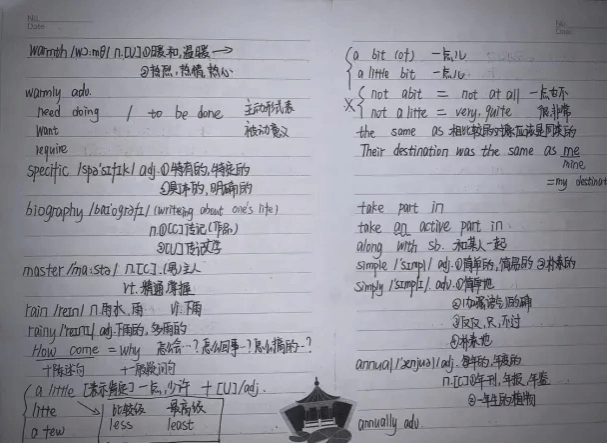 No.
Date
warmth /wɔ:mθ/ n.[U]①暖和,温暖→
②热烈,热情,热心
warmly adv.
need doing / to be done 主动形式表
want 被动意义
require
specific /spə'sɪfɪk/ adj.①特有的,特定的
②具体的,明确的
biography /baɪ'ɒgrəfɪ/ (writeing about one's life)
n.①[C]传记(作品)
②[U]传记文学
master /'ma:stə/ n.[C].(男)主人
vt.精通,掌握
rain /reɪn/ n.雨水,雨 vi.下雨
rainy /'reɪnɪ/ adj.下雨的,多雨的
How come = why 怎么会…?怎么回事…?怎么搞的…?
+陈述句 +一般疑问句
a little [表示肯定]一点,少许 +[U]/adj.
little 比较级 最高级
a few less least
No.
Date
a bit (of) 一点儿
a little bit 一点儿
not abit = not at all 一点也不
not a little = very, quite 很,非常
the same as 相比较的对象应该是同类的
Their destination was the same as me
mine
=my destinat
take part in
take an active part in
along with sb. 和某人一起
simple /'sɪmpl/ adj.①简单的,简易的 ②朴素的
simply /'sɪmplɪ/ adv.①简单地
②(加强语气)的确
③仅仅,只,不过
④朴素地
annual /'ænjuəl/ adj.每年的,年度的
n.[C]①年刊,年报,年鉴
②一年生的植物
annually adv.